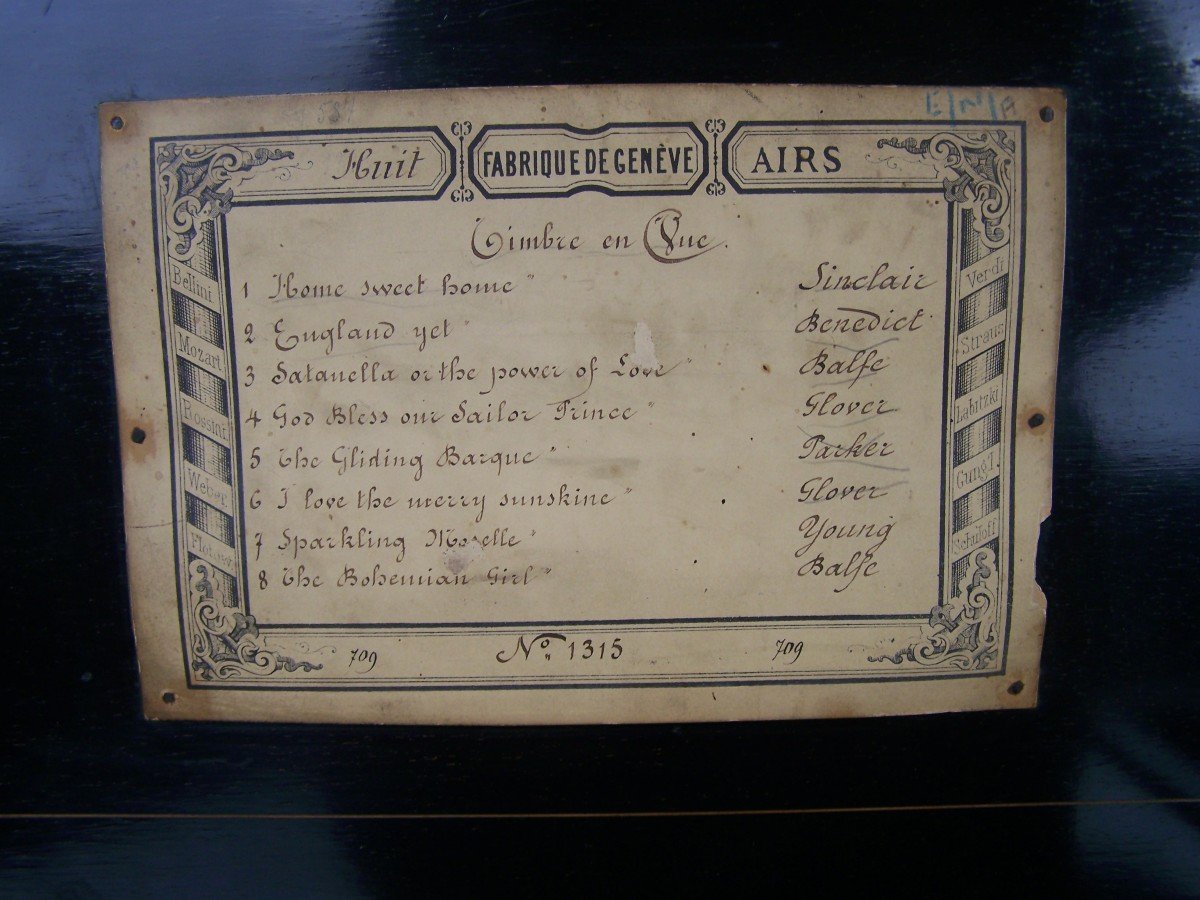 Huit FABRIQUE DE GENÈVE AIRS
Timbre en Vue.
1 Home sweet home " " Sinclair
2 England yet " Benedict
3 Satanella or the power of Love " Balfe
4 God Bless our Sailor Prince " Glover
5 The Gliding Barque " Parker
6 I love the merry sunskine " Glover
7 Sparkling Moselle " Young
8 The Bohemian Girl " Balfe
Bellini
Mozart
Rossini
Weber
Flotow
Verdi
Straus
Labitzki
Gung'l
Schuloff
709 No. 1315 709